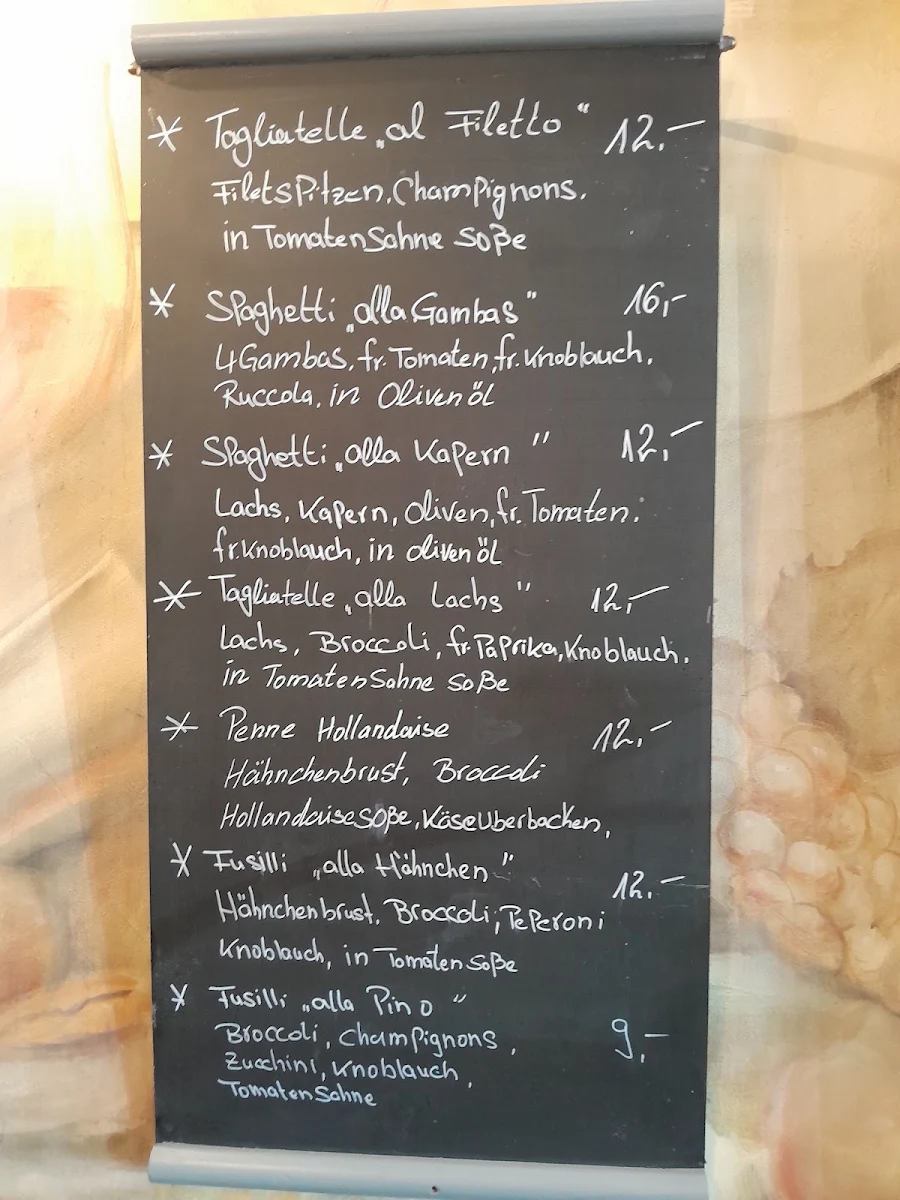 * Tagliatelle „al Filetto“ 12.-
Filetspitzen, Champignons,
in Tomaten Sahne Soße
* Spaghetti „alla Gambas“ 16,-
4 Gambas, fr. Tomaten, fr. Knoblauch,
Ruccola, in Oliven öl
* Spaghetti „alla Kapern“ 12,-
Lachs, Kapern, Oliven, fr. Tomaten,
fr. Knoblauch, in oliven öl
* Tagliatelle „alla Lachs“ 12,-
Lachs, Broccoli, fr. Paprika, Knoblauch,
in Tomaten Sahne Soße
* Penne Hollandaise 12,-
Hähnchenbrust, Broccoli
Hollandaise Soße, Käse überbacken,
* Fusilli „alla Hähnchen“ 12.-
Hähnchenbrust, Broccoli, Peperoni
Knoblauch, in Tomaten Soße
* Fusilli „alla Pino“ 9,-
Broccoli, Champignons,
Zucchini, Knoblauch,
Tomaten Sahne